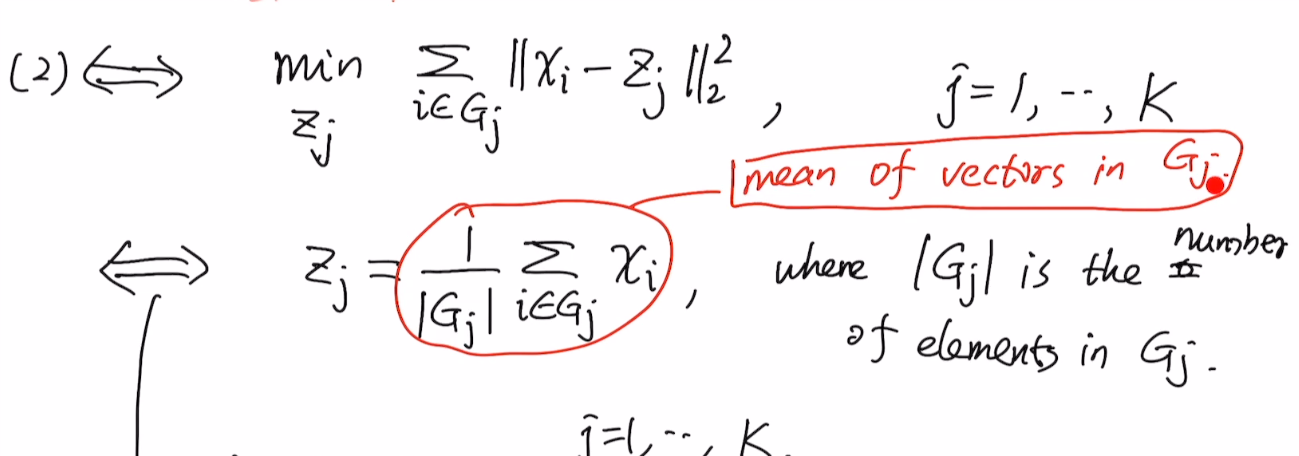 (2) ⟺ min_{z_j} Σ_{i∈G_j} ‖x_i − z_j‖₂², j=1, ⋯, K
mean of vectors in G_j.
⟺ z_j = 1/|G_j| Σ_{i∈G_j} x_i, where |G_j| is the number
of elements in G_j.
j=1, ⋯, K.